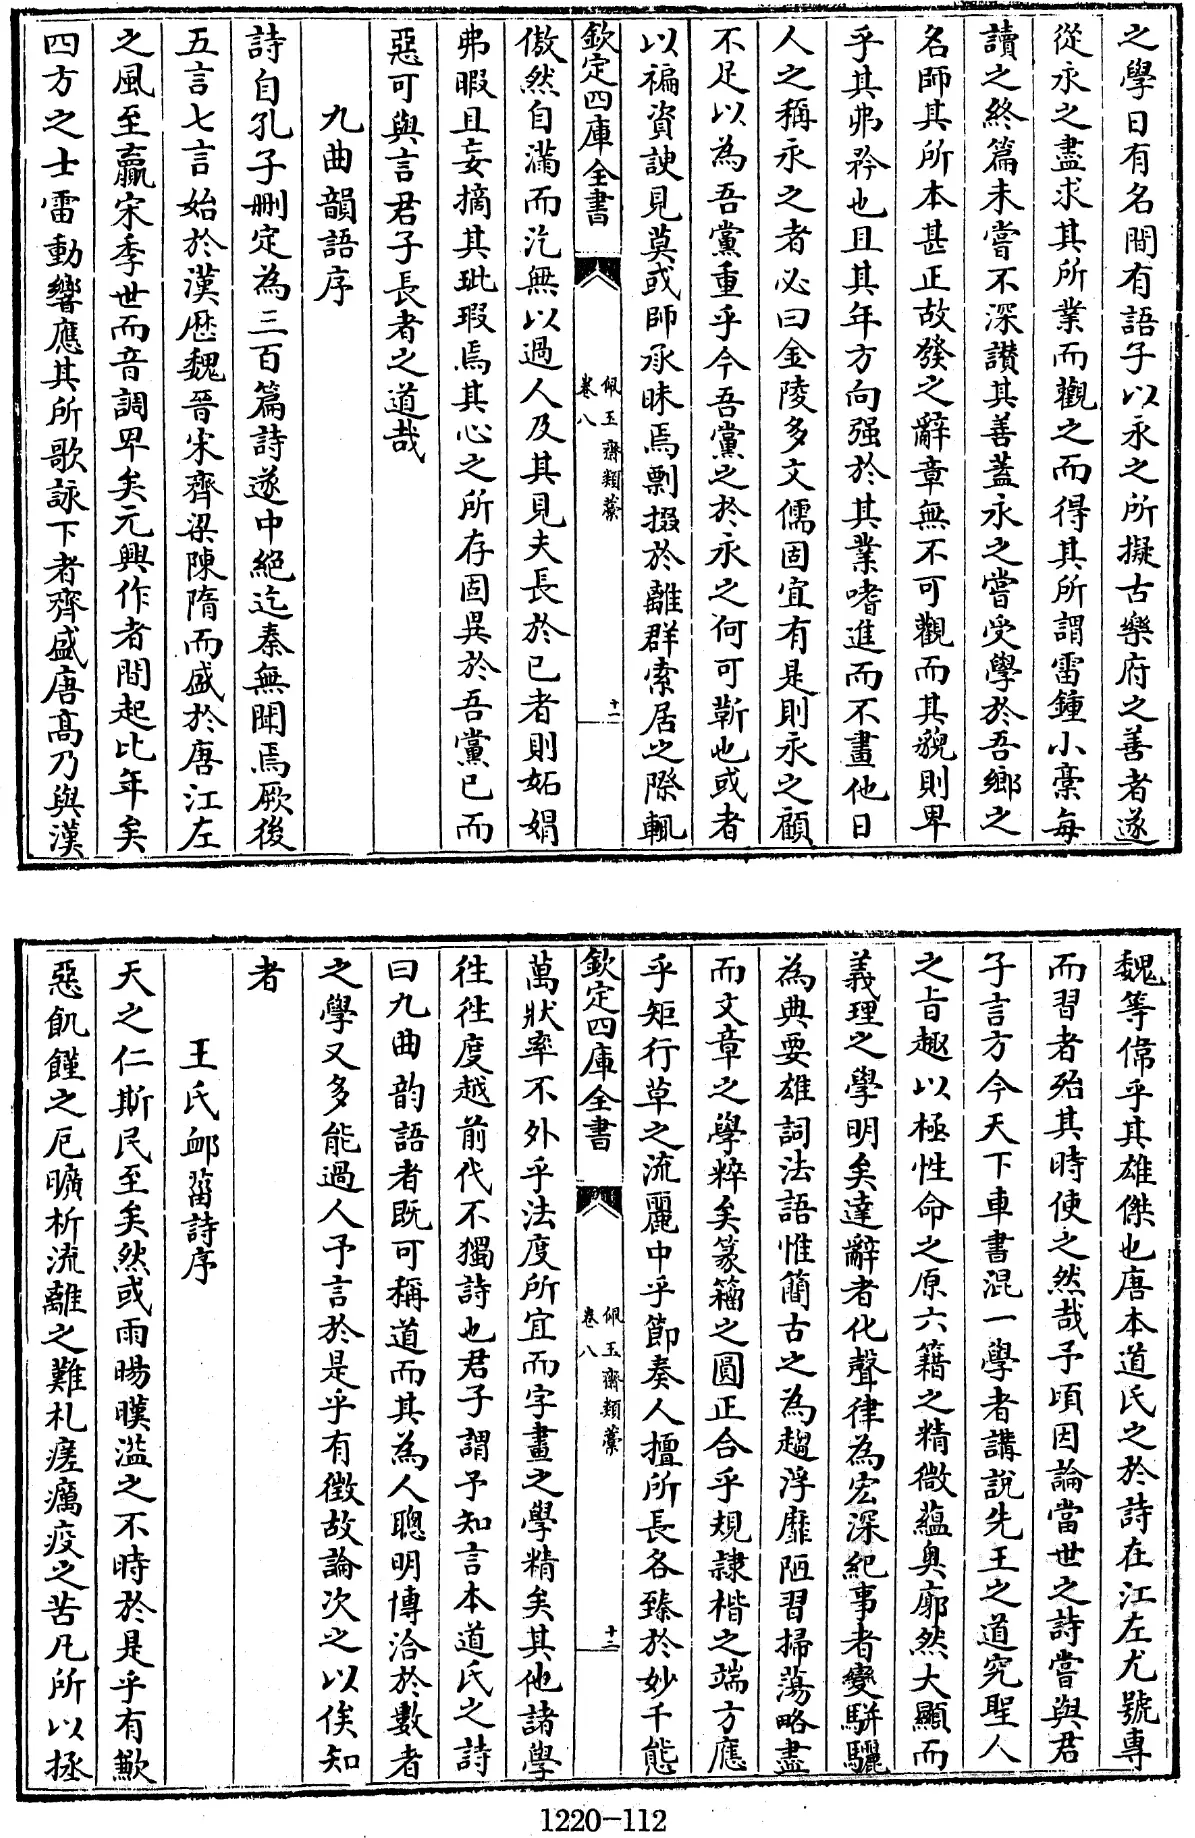 之學日有名間有語予以永之所擬古樂府之善者遂
從永之盡求其所業而觀之而得其所謂雷鍾小稾每
讀之終篇未嘗不深讃其善蓋永之嘗受學於吾鄉之
名師其所本甚正故發之辭章無不可觀而其貌則卑
乎其弗矜也且其年方向强於其業嗜進而不畫他日
人之稱永之者必曰金陵多文儒固宜有是則永之顧
不足以為吾黨重乎今吾黨之於永之何可靳也或者
以褊資諛見莫或師承昧焉剽掇於離群索居之際輒
欽定四庫全書
佩玉齋類藁
卷八
十一
傲然自滿而汔無以過人及其見夫長於已者則妬媢
弗暇且妄摘其玼瑕焉其心之所存固異於吾黨已而
惡可與言君子長者之道哉
九曲韻語序
詩自孔子刪定為三百篇詩遂中絕迄秦無聞焉厥後
五言七言始於漢歷魏晉宋齊梁陳隋而盛於唐江左
之風至贏宋季世而音調卑矣元興作者間起比年矣
四方之士雷動響應其所歌詠下者齊盛唐高乃與漢
魏等偉乎其雄傑也唐本道氏之於詩在江左尤號專
而習者殆其時使之然哉予頃因論當世之詩嘗與君
子言方今天下車書混一學者講說先王之道究聖人
之旨趣以極性命之原六籍之精微蘊奥廓然大顯而
義理之學明矣達辭者化聲律為宏深紀事者變駢驪
為典要雄詞法語惟簡古之為趨浮靡陋習掃蕩略盡
而文章之學粹矣篆籀之圓正合乎規隷楷之端方應
乎矩行草之流麗中乎節奏人擅所長各臻於妙千態
欽定四庫全書
佩玉齋類藁
卷八
十二
萬狀率不外乎法度所宜而字畫之學精矣其他諸學
徃徃度越前代不獨詩也君子謂予知言本道氏之詩
曰九曲韵語者既可稱道而其為人聰明博洽於數者
之學又多能過人予言於是乎有徵故論次之以俟知
者
王氏䘏菑詩序
天之仁斯民至矣然或雨暘暵溢之不時於是乎有歉
惡飢饉之厄曠析流離之難札瘥癘疫之苦凡所以拯
1220-112